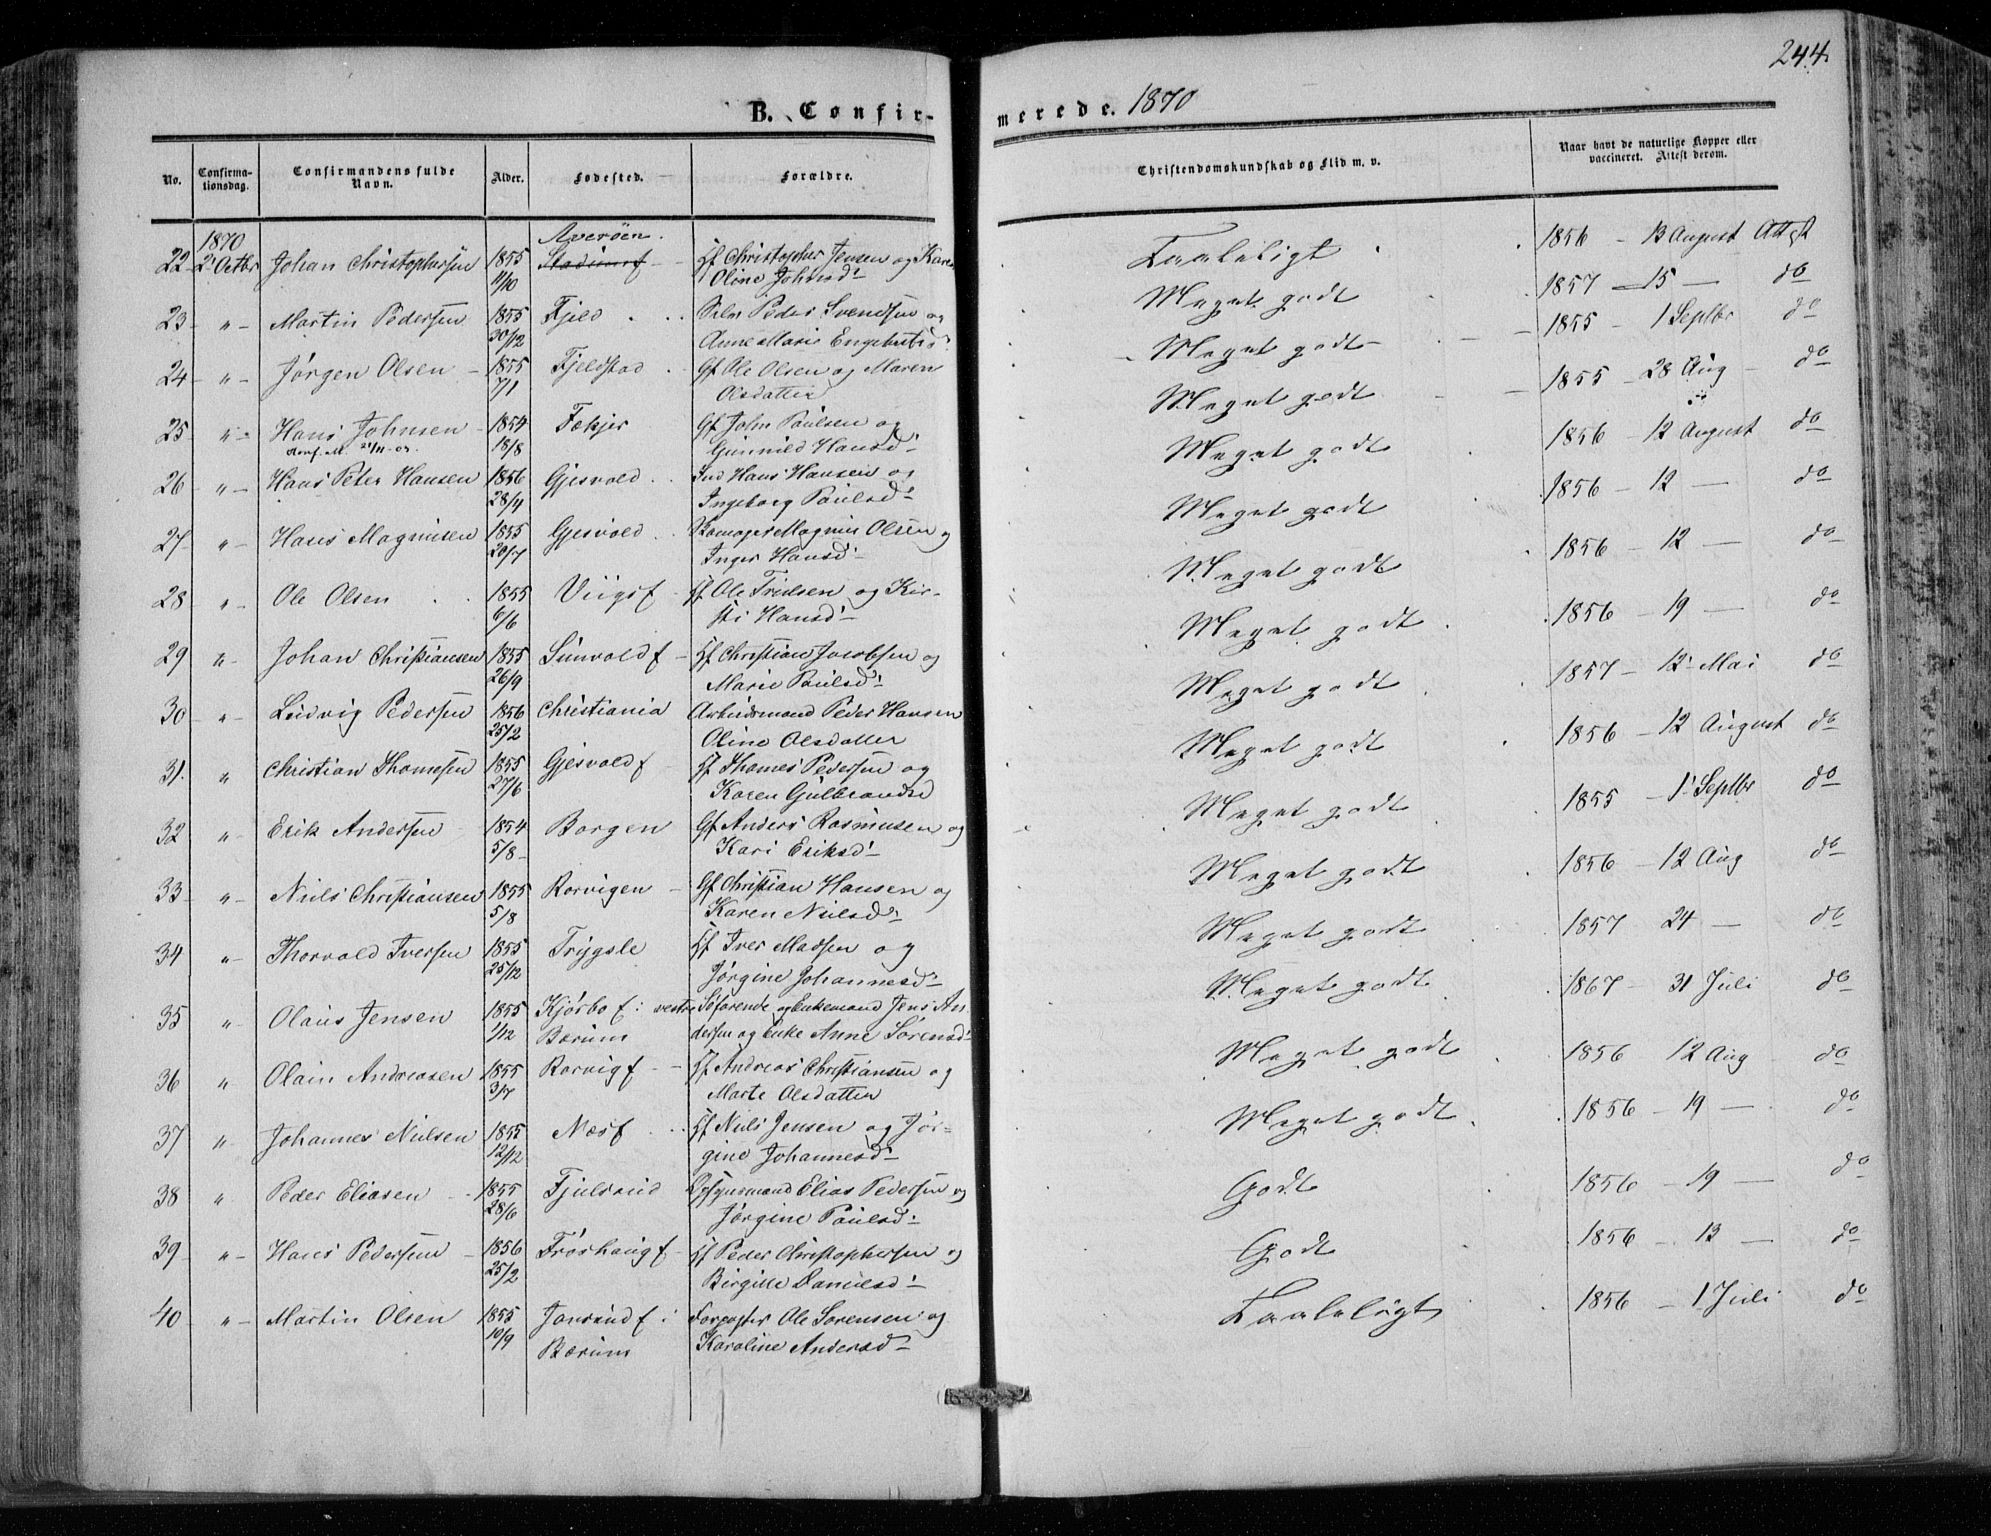 244
B. Confir-
merede. 1870
No.
Confirma-
tionsdag.
Confirmandens fulde
Navn.
Alder.
Fødested.
Forældre.
Christendomskundskab og Flid m. v.
Naar havt de naturlige Kopper eller
vaccineret. Attest derom.
1870 Averøen.
22 2' Octbr Johan Christophersen 1855 Gf Christopher Jensen og Karen Taaleligt 1856 - 13 August Attest
11/10 Oline Johnsd:
23 " Martin Pedersen 1855 Fjeld Peder Svendsen og Meget godt 1857 - 15 - do
30/12 Anne Marie Engebretsd:
24 " Jørgen Olsen 1855 Fjeldstad Gf Ole Olsen og Maren Meget godt 1855 - 1 Septbr do
7/1 Olsdatter
25 " Hans Johnsen 1854 Fækjer Gf John Paulsen og Meget godt 1855 - 28 Aug do
18/8 Gunnild Hansd:
26 " Hans Peter Hansen 1856 Gjesvold Ind Hans Hansen og Meget godt 1856 - 12 August do
28/4 Ingeborg Paulsd:
27 " Hans Magnusen 1855 Gjesvold Magnus Olsen og Meget godt 1856 - 12 - do
20/7 Inger Hansd:
28 " Ole Olsen 1855 Viigsf Gf Ole Trulsen og Kir- Meget godt 1856 - 12 - do
6/6 sti Hansd:
29 " Johan Christiansen 1855 Sunvold f Gf Christian Jacobsen og Meget godt 1856 - 19 - do
26/9 Marie Paulsd:
30 " Ludvig Pedersen 1856 Christiania Arbeidsmand Peder Hansen Meget godt 1857 - 12' Mai do
25/2 Oline Olsdatter
31. " Christian Thomesen 1855 Gjesvold f Gf Thomes Pedersen og Meget godt 1856 - 12 August do
27/6 Karen Gulbrandsd
32 " Erik Andersen 1854 Borgen Gf Anders Rasmusen og Meget godt 1855 - 1' Septbr do
5/8 Kari Eriksd:
33 " Niels Christiansen 1855 Rorvigen Gf Christian Hansen og Meget godt 1856 - 12 Aug do
5/8 Karen Nielsd:
34 " Thorvald Iversen 1855 Trygsle Gf Iver Madsen og Meget godt 1857 24 - do
25/12 Jørgine Johannesd:
35 " Olaus Jensen 1855 Kjørbo f: vestre Søfarende og Enkemand Jens An- Meget godt 1867 - 31 Juli do
1/12 Bærum dersen og Enke Anne Sørensd:
36 " Olain Andreasen 1855 Rorvig f Gf Andreas Christiansen og Meget godt 1856 12 Aug do
3/7 Marte Olsdatter
37 " Johannes Nielsen 1855 Næs f Gf Niels Jensen og Jør- Meget godt 1856 - 19 - do
12/12 gine Johannesd:
38 " Peder Eliasen 1855 Fjulsrud Elias Pedersen og Godt 1856 - 19 - do
28/6 Jørgine Paulsd:
39 " Hans Pedersen 1856 Frøshaug f Gf Peder Christophersen og Godt 1856 - 13 - do
25/2 Birgitte Danielsd:
40 " Martin Olsen 1855 Jonsrud f: Forpagter Ole Sørensen og Taaleligt 1856 - 1 Juli do
10/9 Bærum Karoline Andersd: